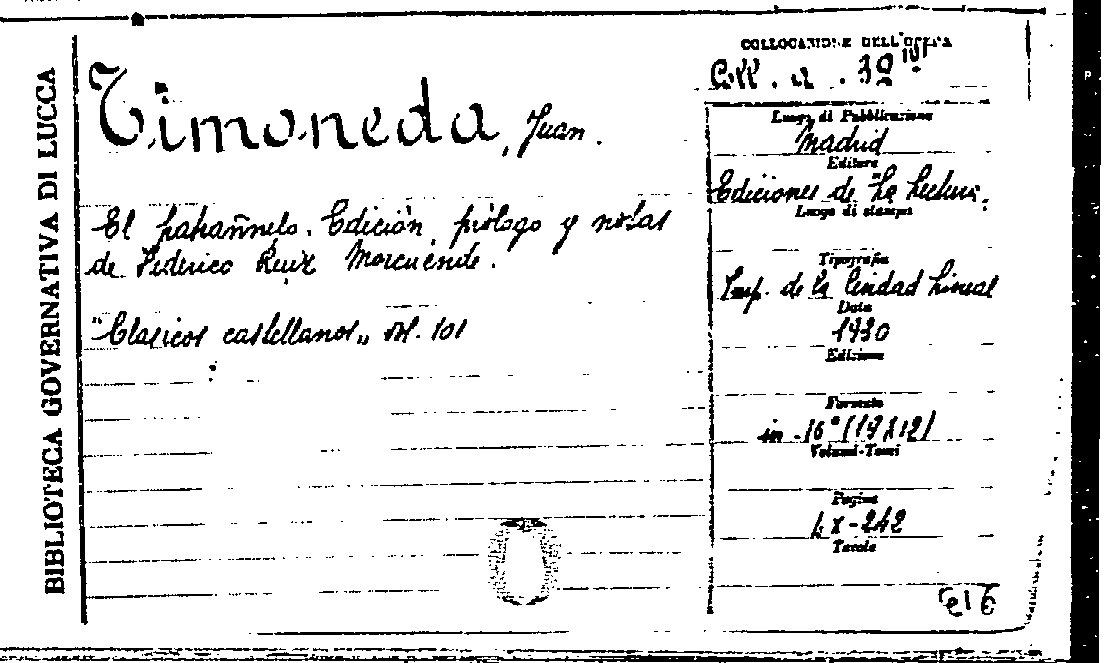 BIBLIOTECA GOVERNATIVA DI LUCCA
COLLOCAZIONE DELL'OPERA
Coll. a . 39
Timoneda, Juan.
El patrañuelo. Edición, prólogo y notas
de Federico Ruiz Morcuende.
"Clasicos castellanos„ vol. 101
Luogo di Pubblicazione
Madrid
Editore
Ediciones de "La Lectura.
Luogo di stampa
Tipografia
Imp. de la Ciudad Lineal
Data
1930
Edizione
Formato
in-16° (19X12)
Volumi-Tomi
Pagine
LX-242
Tavole